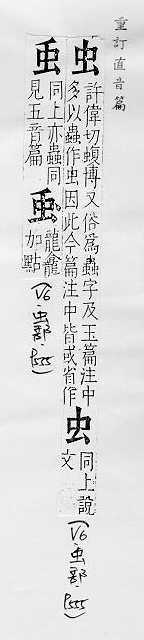 重訂直音篇
虫 許偉切蝮博又俗為蟲字及玉篇注中
多以蟲作虫因此今篇注中皆或省作 虫 同上說
文 (V6·虫部·P.555)
䖝 同上亦蟲同
見五音篇 龍龕
加點 (V6·虫部·P.555)